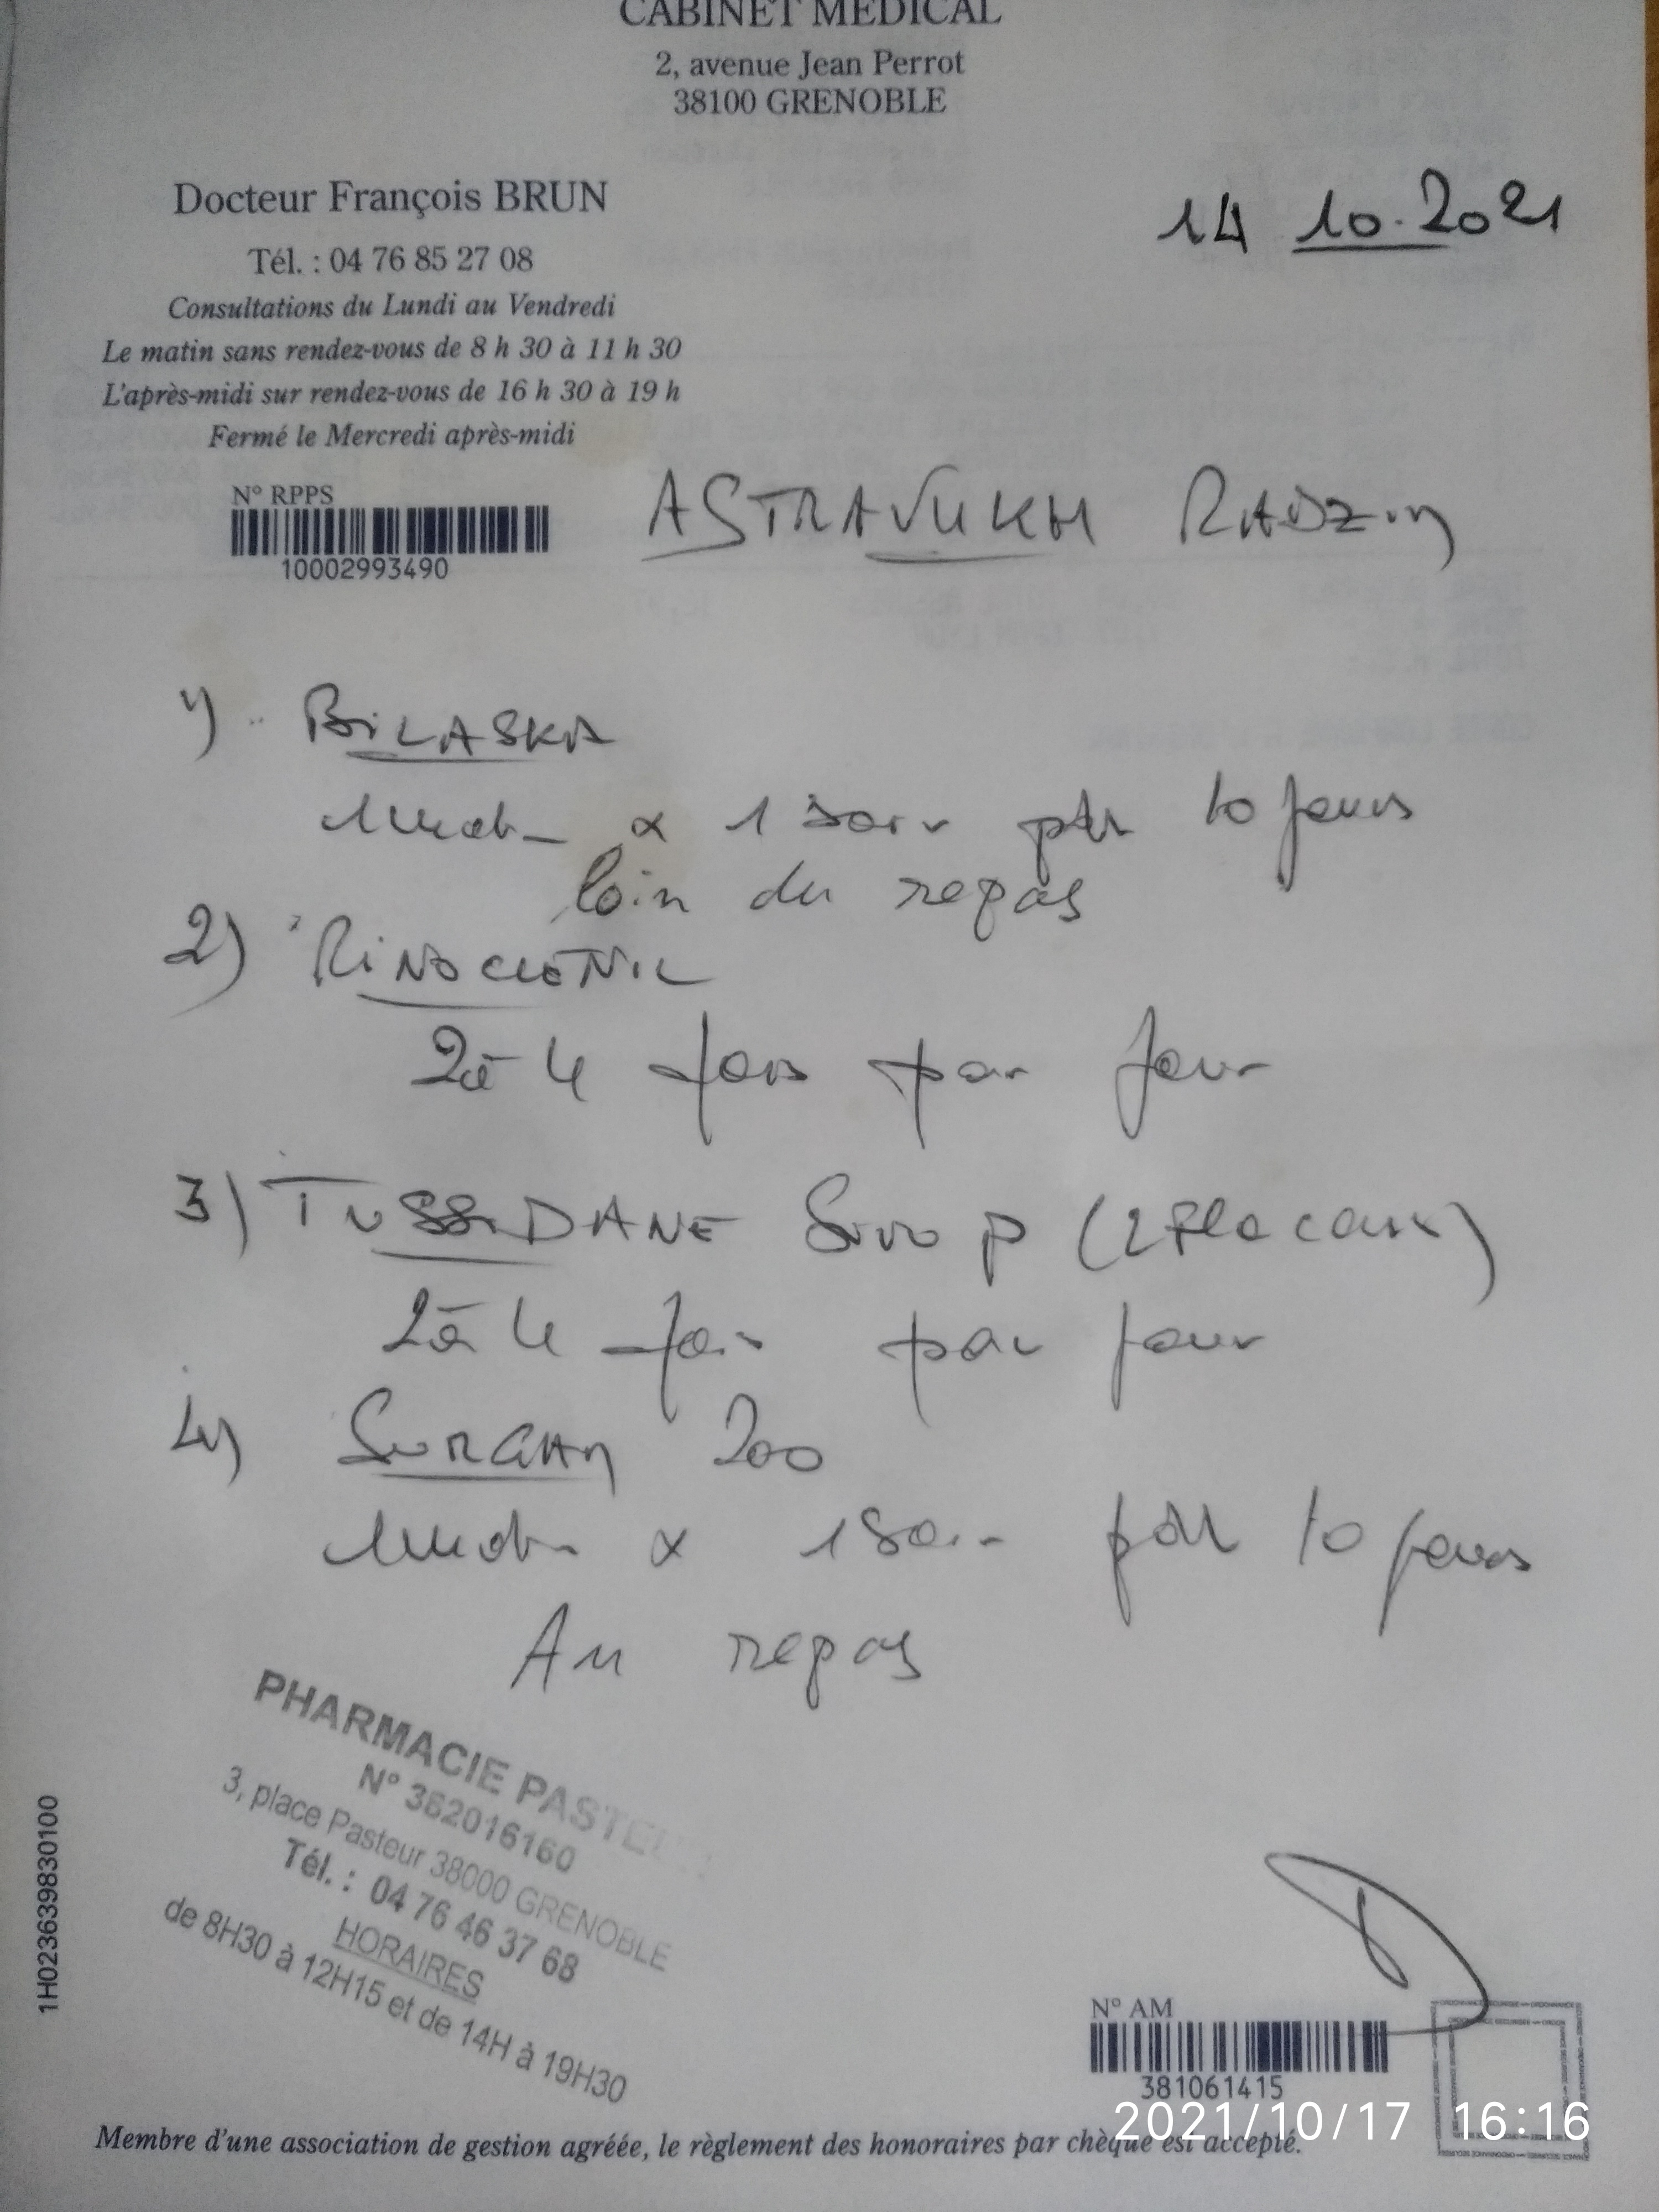 CABINET MEDICAL
2, avenue Jean Perrot
38100 GRENOBLE
Docteur François BRUN
Tél. : 04 76 85 27 08
Consultations du Lundi au Vendredi
Le matin sans rendez-vous de 8 h 30 à 11 h 30
L'après-midi sur rendez-vous de 16 h 30 à 19 h
Fermé le Mercredi après-midi
14 10.2021
N° RPPS
10002993490
ASTRAVUKH RADZIM
1) BILASKA
1 mat x 1 soir pdt 10 jours
loin du repas
2) RINOCLENIL
2 à 4 fois par jour
3) TUSSIDANE Sirop (2 flacons)
2 à 4 fois par jour
4) SURGAM 200
1 mat x 1 soir pdt 10 jours
Au repas
PHARMACIE PASTEUR
N° 382016160
3, place Pasteur 38000 GRENOBLE
Tél. : 04 76 46 37 68
HORAIRES
de 8H30 à 12H15 et de 14H à 19H30
1H023639830100
N° AM
381061415
2021/10/17 16:16
Membre d'une association de gestion agréée, le règlement des honoraires par chèque est accepté.